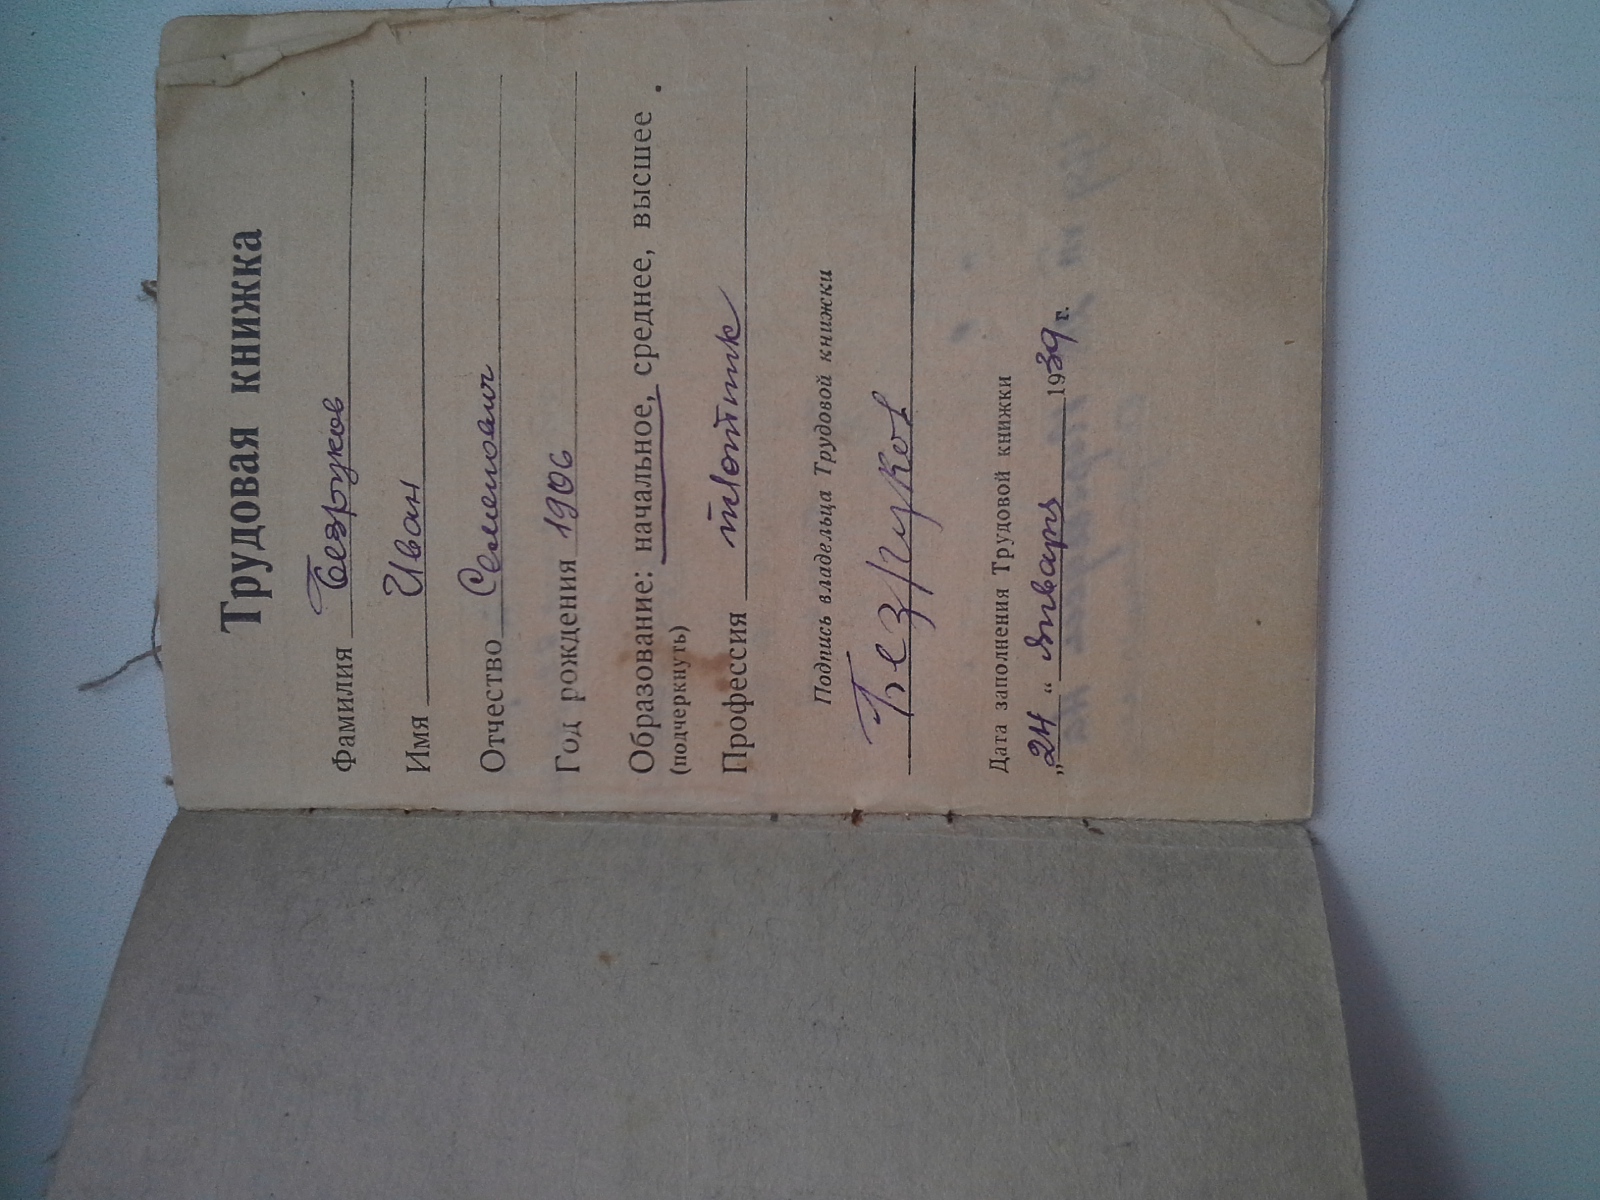 Трудовая книжка
Фамилия Безруков
Имя Иван
Отчество Семенович
Год рождения 1906
Образование: начальное, среднее, высшее.
(подчеркнуть)
Профессия плотник
Подпись владельца Трудовой книжки
Безруков
Дата заполнения Трудовой книжки
„24“ января 1939 г.